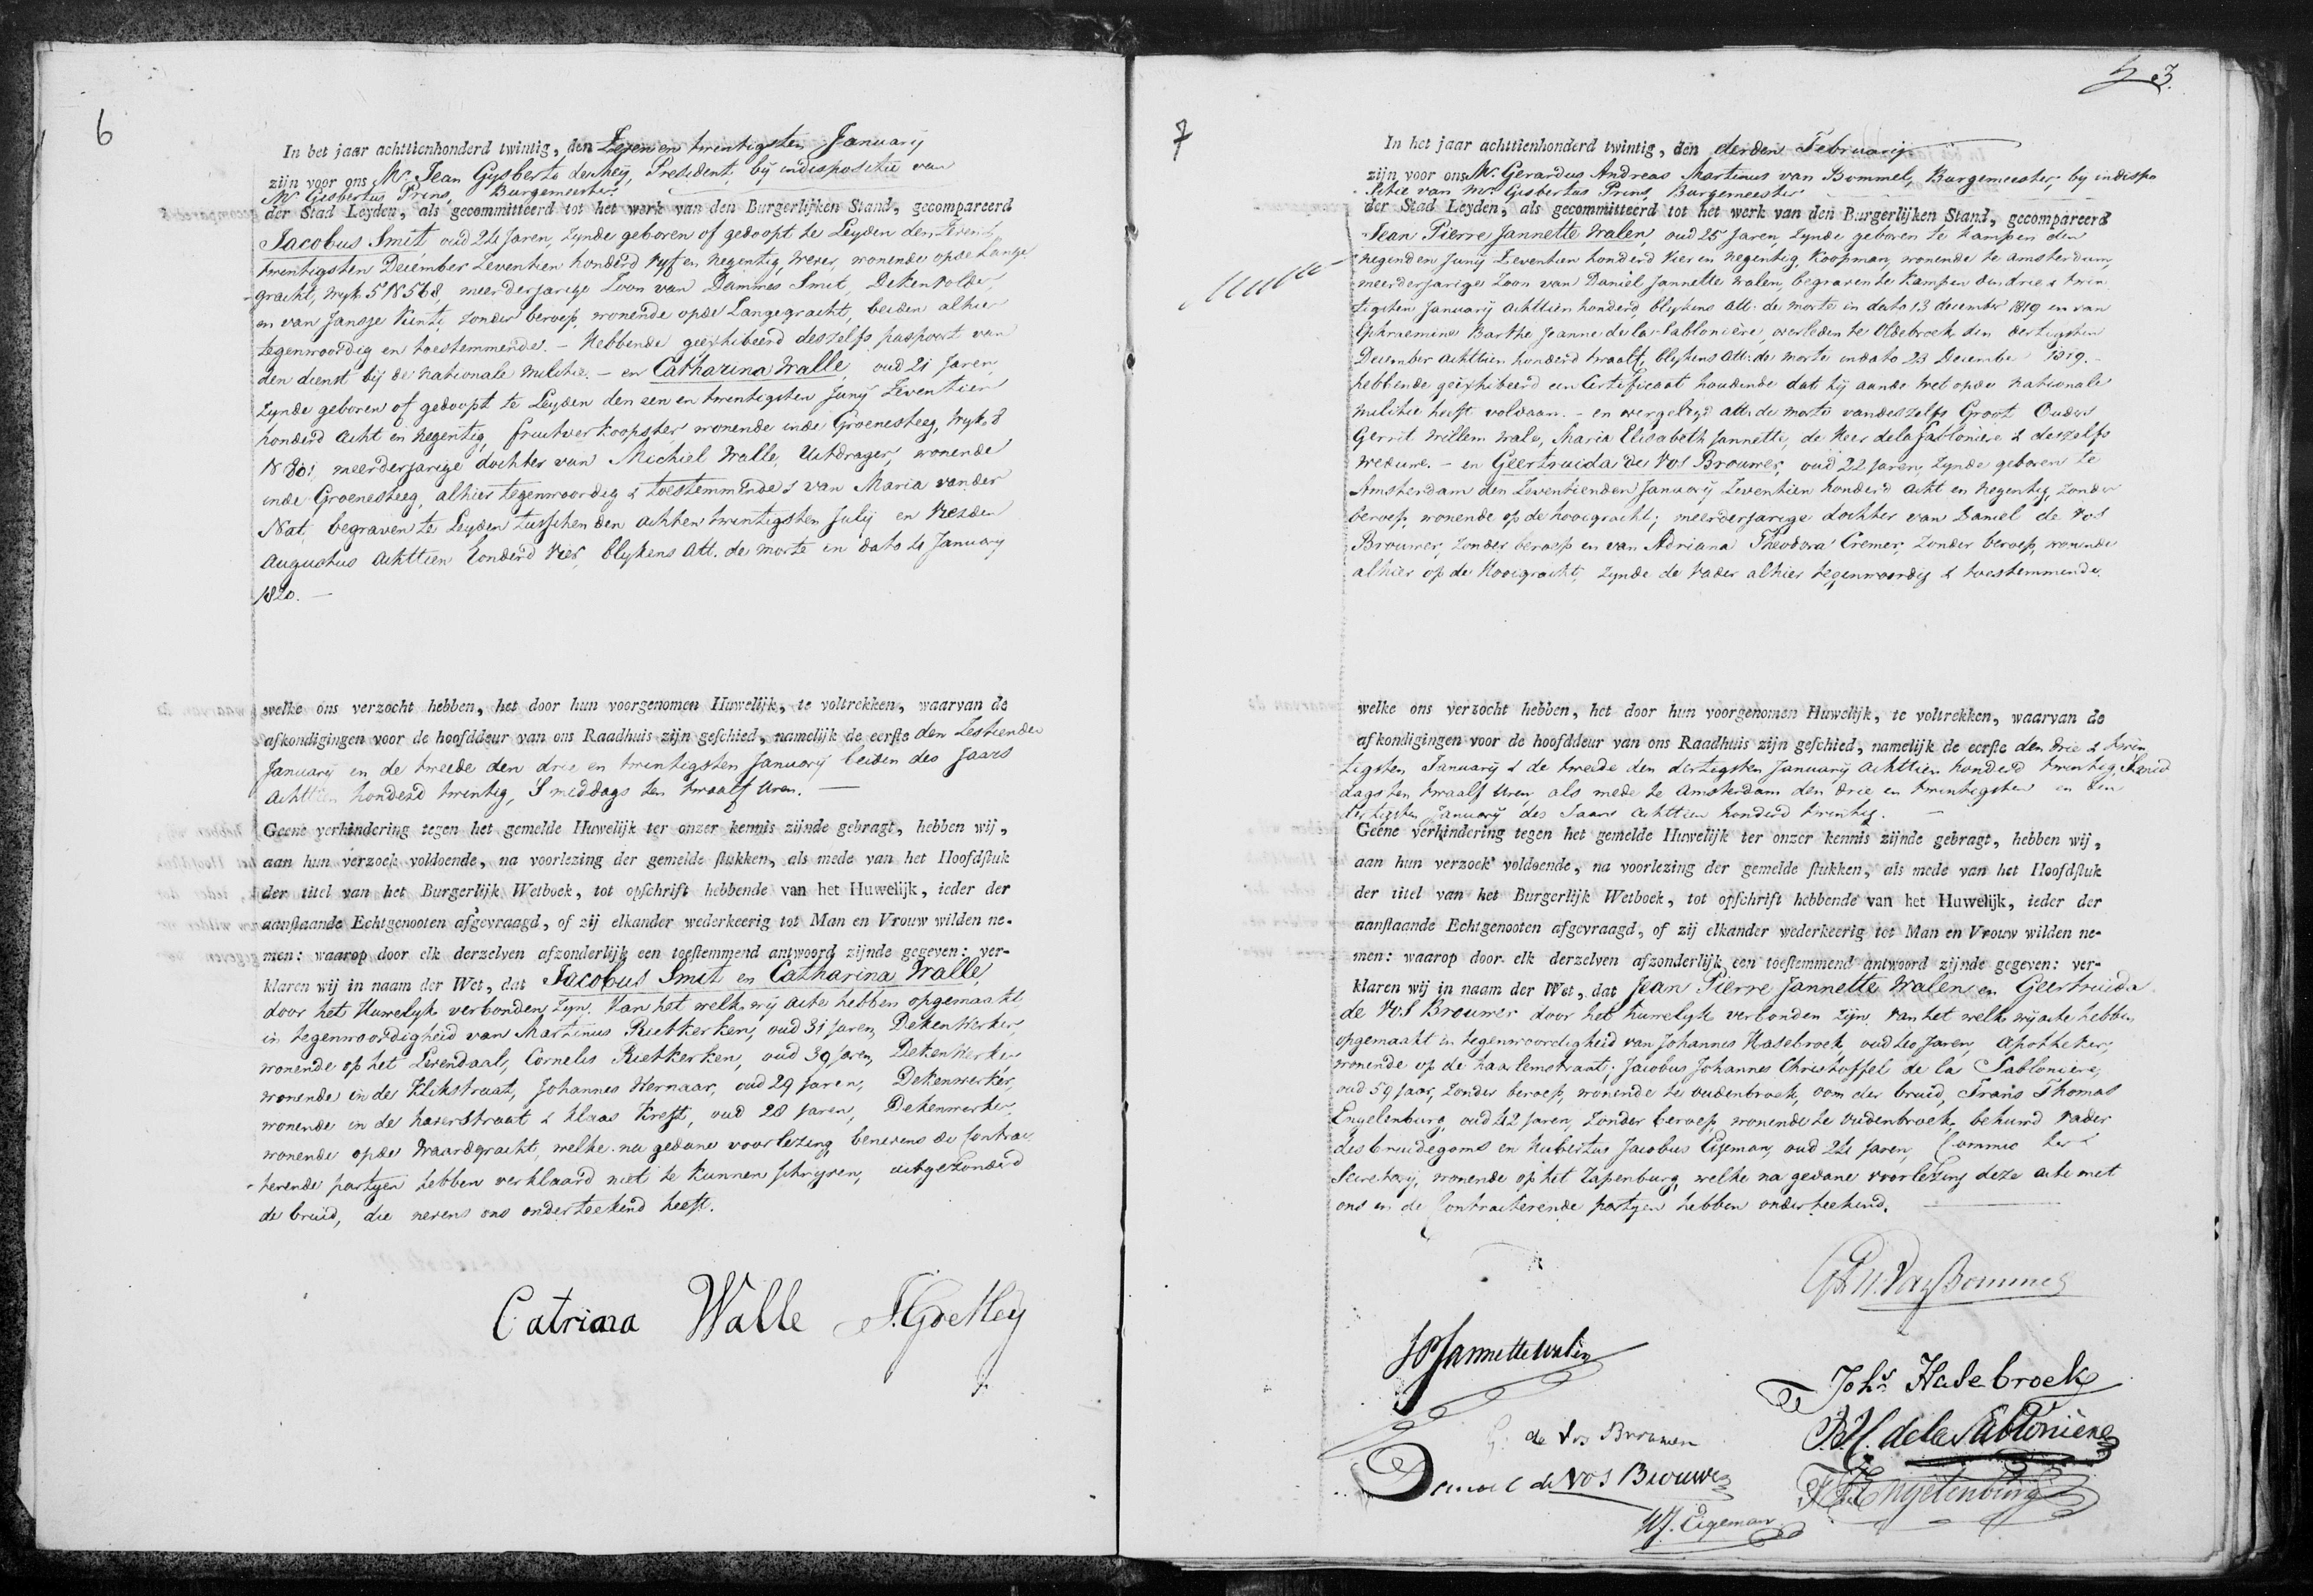 6
In het jaar achttienhonderd twintig, den Zeven en twintigsten Januarij
zijn voor ons Mr. Jean Gysberto de Mey, President, bij indispositie van
Mr Gisbertus Prins, Burgemeester
der Stad Leyden, als gecommitteerd tot het werk van den Burgerlijken Stand, gecompareerd
Jacobus Smit oud 24 Jaren, zynde geboren of gedoopt te Leyden den Zeven &
twintigsten December Zeventien honderd vyf en Negentig, wever, wonende op de Lange
gracht, wyk 5 N 568, meerderjarige Zoon van Dammes Smit, Dekenvolder,
en van Jansje Kunti, zonder beroep, wonende op de Langegracht, beiden alhier
tegenwoordig en toestemmende. – Hebbende geexhibeerd deszelfs paspoort van
den dienst bij de Nationale Militie. – en Catharina Walle, oud 21 Jaren,
zynde geboren of gedoopt te Leyden den een en twintigsten Junij Zeventien
honderd Acht en Negentig, fruitverkoopster wonende inde Groenesteeg, wyk 8
N 80, meerderjarige dochter van Michiel Walle, Uitdrager, wonende
inde Groenesteeg, alhier tegenwoordig & toestemmende & van Maria vander
Nat, begraven te Leyden tusschen den achten twintigsten Julij en Vierden
Augustus Achttien honderd vier, blykens Att. de morte in dato 4 January
1820. –
welke ons verzocht hebben, het door hun voorgenomen Huwelijk, te voltrekken, waarvan de
afkondigingen voor de hoofddeur van ons Raadhuis zijn geschied, namelijk de eerste den Zestienden
Januarij en de tweede den drie en twintigsten Januarij beiden des Jaars
Achttien honderd twintig, S'middags ten twaalf Uren. –
Geene verhindering tegen het gemelde Huwelijk ter onzer kennis zijnde gebragt, hebben wij,
aan hun verzoek voldoende, na voorlezing der gemelde stukken, als mede van het Hoofdstuk
der titel van het Burgerlijk Wetboek, tot opschrift hebbende van het Huwelijk, ieder der
aanstaande Echtgenooten afgevraagd, of zij elkander wederkeerig tot Man en Vrouw wilden ne-
men: waarop door elk derzelven afzonderlijk een toestemmend antwoord zijnde gegeven: ver-
klaren wij in naam der Wet, dat Jacobus Smit en Catharina Walle,
door het Huwelyk verbonden zyn. Van het welk wij acte hebben opgemaakt
in tegenwoordigheid van Martinus Rietkerken, oud 31 Jaren, Dekenwerker,
wonende op het Levendaal, Cornelis Rietkerken, oud 39 Jaren, Dekenwerker
wonende in de Klikstraat, Johannes Wernaar, oud 29 Jaren, Dekenwerker,
wonende in de haverstraat & Klaas Kreft, oud 28 Jaren, Dekenwerker
wonende opde Waardgracht, welke na gedane voorlezing, benevens de Contrac
terende partyen hebben verklaard niet te kunnen schryven, uitgezonderd
de bruid, die nevens ons onderteekend heeft.
Catrina Walle J.G. de Mey
7
3.
In het jaar achttienhonderd twintig, den derden Februarij
zijn voor ons Mr. Gerardus Andreas Martinus van Bommel, Burgemeester, by indispo
sitie van Mr. Gisbertus Prins, Burgemeester
der Stad Leyden, als gecommitteerd tot het werk van den Burgerlijken Stand, gecompareerd
Jean Pierre Jannette Walen, oud 25 Jaren, zynde geboren te Kampen den
negenden Junij Zeventien honderd Vier en Negentig, Koopman, wonende te Amsterdam,
meerderjarige Zoon van Daniel Jannette Walen, begraven te Kampen den drie & twin
tigsten January Achttien honderd blykens Att. de morte in dato 13 december 1819 en van
Ephraemina Barthe Jeanne de la Sabloniere, overleden te Oldebroek den dertigsten
December Achttien honderd twaalf, blykens Att: de morte indato 23 December 1819. –
hebbende geexhibeerd een Certificaat houdende dat hij aande Wet opde Nationale
Militie heeft voldaan. – en overgelegd Att: de morte van deszelfs Groot Ouders
Gerrit Willem Wale, Maria Elisabeth Jannette, de Heer dela Sabloniere & deszelfs
Weduwe. – en Geertruida de Vos Brouwer, oud 22 Jaren, zynde geboren te
Amsterdam den Zeventienden Januarij Zeventien honderd acht en Negentig, zonder
beroep, wonende op de hooigracht; meerderjarige dochter van Daniel de Vos
Brouwer, zonder beroep en van Adriana Theodora Cremer, zonder beroep, wonende
alhier op de Hooigracht, zynde de Vader alhier tegenwoordig & toestemmende.
welke ons verzocht hebben, het door hun voorgenomen Huwelijk, te voltrekken, waarvan de
afkondigingen voor de hoofddeur van ons Raadhuis zijn geschied, namelijk de eerste den drie & twin
tigsten Januarij & de tweede den dertigsten Januarij Achttien honderd twintig, S'mid
dags ten twaalf Uren, als mede te Amsterdam den drie en twintigsten en den
dertigsten Januarij des Jaars Achttien honderd twintig. –
Geene verhindering tegen het gemelde Huwelijk ter onzer kennis zijnde gebragt, hebben wij,
aan hun verzoek voldoende, na voorlezing der gemelde stukken, als mede van het Hoofdstuk
der titel van het Burgerlijk Wetboek, tot opschrift hebbende van het Huwelijk, ieder der
aanstaande Echtgenooten afgevraagd, of zij elkander wederkeerig tot Man en Vrouw wilden ne-
men: waarop door elk derzelven afzonderlijk een toestemmend antwoord zijnde gegeven: ver-
klaren wij in naam der Wet, dat Jean Pierre Jannette Walen en Geertruida
de Vos Brouwer door het huwelyk verbonden zijn. Van het welk wij acte hebben
opgemaakt in tegenwoordigheid van Johannes Hasebroek, oud 40 Jaren, Apotheker,
wonende op de haarlemstraat; Jacobus Johannes Christoffel de la Sabloniere,
oud 59 Jaar, zonder beroep, wonende te oudenbroek, oom der bruid, Frans Thomas
Engelenburg, oud 42 Jaren, zonder beroep, wonende te oudenbroek, behuwd Vader
des bruidegoms en Hubertus Jacobus Eigeman, oud 24 Jaren, Commis ter
Secretary, wonende op het Zapenburg, welke na gedane voorlezing deze acte met
ons en de Contracterende partyen hebben onderteekend.
G.A.M. Van Bommel
JP Jannette Walen
Johs. Hasebroek
de la Sabloniere
G: de Vos Brouwer
Daniel de Vos Brouwer
F T Engelenburg
HJ. Eigeman